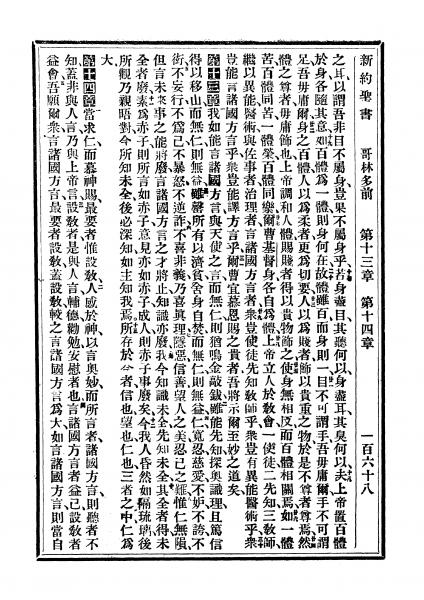 新約聖書 哥林多前 第十三章 第十四章 一百六十八
之耳以謂吾非目不屬身豈果不屬身乎若身盡目其聽何以身盡耳其臭何以夫上帝置百體
於身各隨其意如百體爲一體則身何在故體雖百而身則一目不可謂手吾毋庸爾手不可謂
足吾毋庸爾身之百體人以爲柔者更爲切要人以爲賤者飾以貴重之物於是不尊者尊焉然
體之尊者毋庸飾也上帝調和人體賜賤者得以貴物飾之使身無相反而百體相關焉如一體
苦百體同苦一體榮百體同樂爾曹基督身各自爲體上帝立人於敎會一使徒二先知三敎師
繼以異能醫術與佐事者治理者言諸國方言者衆豈使徒先知敎師乎衆豈有異能醫術乎衆
豈能言諸國方言乎衆豈能譯方言乎爾曹宜慕恩賜之貴者吾將示爾至妙之道矣
第十三章我如能言諸國方言與天使之言而無仁則猶鳴金敲鈸雖能先知探奧識理且篤信
得以移山而無仁則無益雖罄所有以濟貧舍身自焚而無仁則無益仁寬忍慈愛不妒不誇不
衒不妄行不爲己不暴怒不逆詐不喜非義乃喜眞理隱惡信善望人之美忍己之難惟仁無隕
但言未來事之能將廢言諸國方言之才將止知識亦廢我今識未全先知未全其全者得未
全者廢素爲赤子則所言如赤子意見亦如赤子成人則赤子事廢矣今我人昏然如隔琉璃後
所觀乃親晤對今所知未全後必深知如主知我焉所存於今者信也望也仁也三者之中仁爲
大
第十四章當求仁而慕神賜最要者惟設敎人感於神以言奧妙而所言者諸國方言則聽者不
知蓋非與人言乃與上帝言設敎者是與人言輔德勸勉安慰者也言諸國方言者益己設敎者
益會吾願爾衆言諸國方言最要者設敎蓋設敎較之言諸國方言爲大如言諸國方言則當自